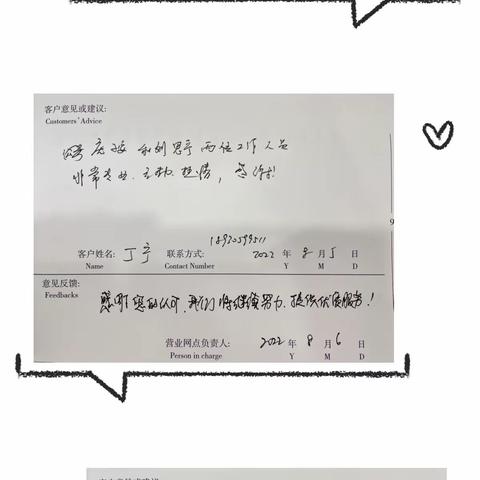 客户意见或建议:
Customers' Advice
和刘思宇两位工作人员
非常专业、主动、热情，感谢!
9
18920599511
客户姓名: 丁宁 联系方式: 2022 年 8 月 5 日
Name Contact Number Y M D
意见反馈:
Feedbacks
感谢您的认可,我们将继续努力、提供优质服务!
营业网点负责人: 2022 年 8 月 6 日
Person in charge Y M D